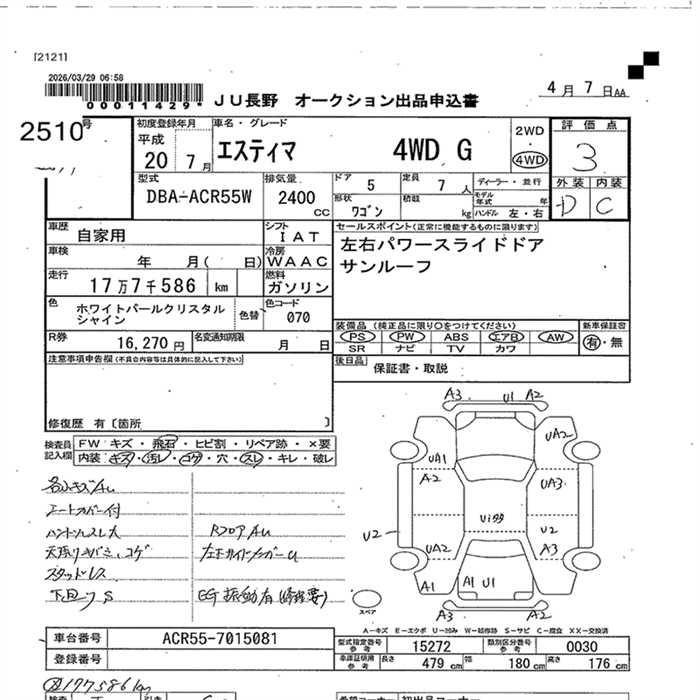 [2121]
2026/03/29 06:58
00011429*
JU長野 オークション出品申込書
4月7日AA
2510号
初度登録年月
平成
20 7月
車名・グレード
エスティマ 4WD G
2WD
4WD
評価点
3
外装 内装
D C
型式
DBA-ACR55W
排気量
2400
CC
ドア
5
定員
7人
ディーラー・並行
形状
ワゴン
積載
kg
モデル年式 年
ハンドル 左・右
車歴
自家用
シフト
IAT
車検
年 月( 日)
冷房
WAAC
走行
17万7千586 km
燃料
ガソリン
色
ホワイトパールクリスタル
シャイン
色替
色コード
070
R券
16,270円
名変通知期限
月 日
セールスポイント(正常に機能するものに限ります)
左右パワースライドドア
サンルーフ
装備品 (純正品に限り○をつけてください)
PS PW ABS エアB AW
SR ナビ TV カワ
新車保証書
有・無
後日品
保証書・取説
注意事項申告欄(不具合内容等は具体的に記入して下さい)
修復歴 有〔箇所 〕
検査員記入欄
FW キズ・飛石・ヒビ割・リペア跡・×要
内装 キズ・汚レ・コゲ・穴・スレ・キレ・破レ
各小キズAU
シートカバー付
ハンドルスレ大
RフロアAU
スタッドレス
下回りS
EG振動有(修理要)
A3 U1 A2
UA2
UA1
A2
UA3
U2
U2
UA2
A3
A1
A1 U1
A2
A3 A2
スペア
A-キズ E-エクボ U-凹み W-補修跡 S-サビ C-腐食 XX-交換済
車台番号
ACR55-7015081
登録番号
型式指定番号
参考
15272
類別区分番号
参考
0030
車庫証明用
参考
長さ
479 cm
幅
180 cm
高さ
176 cm
177586km